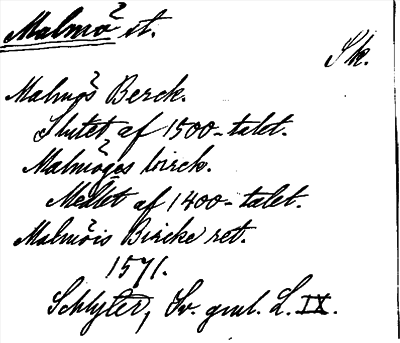 Malmö st.
Sk.
Malmøs Berck.
Slutet af 1500-talet.
Malmöges birck.
Medlet af 1400-talet.
Malmöis Bircke ret.
1571.
Schlyter, Sv. gml. L. IX.